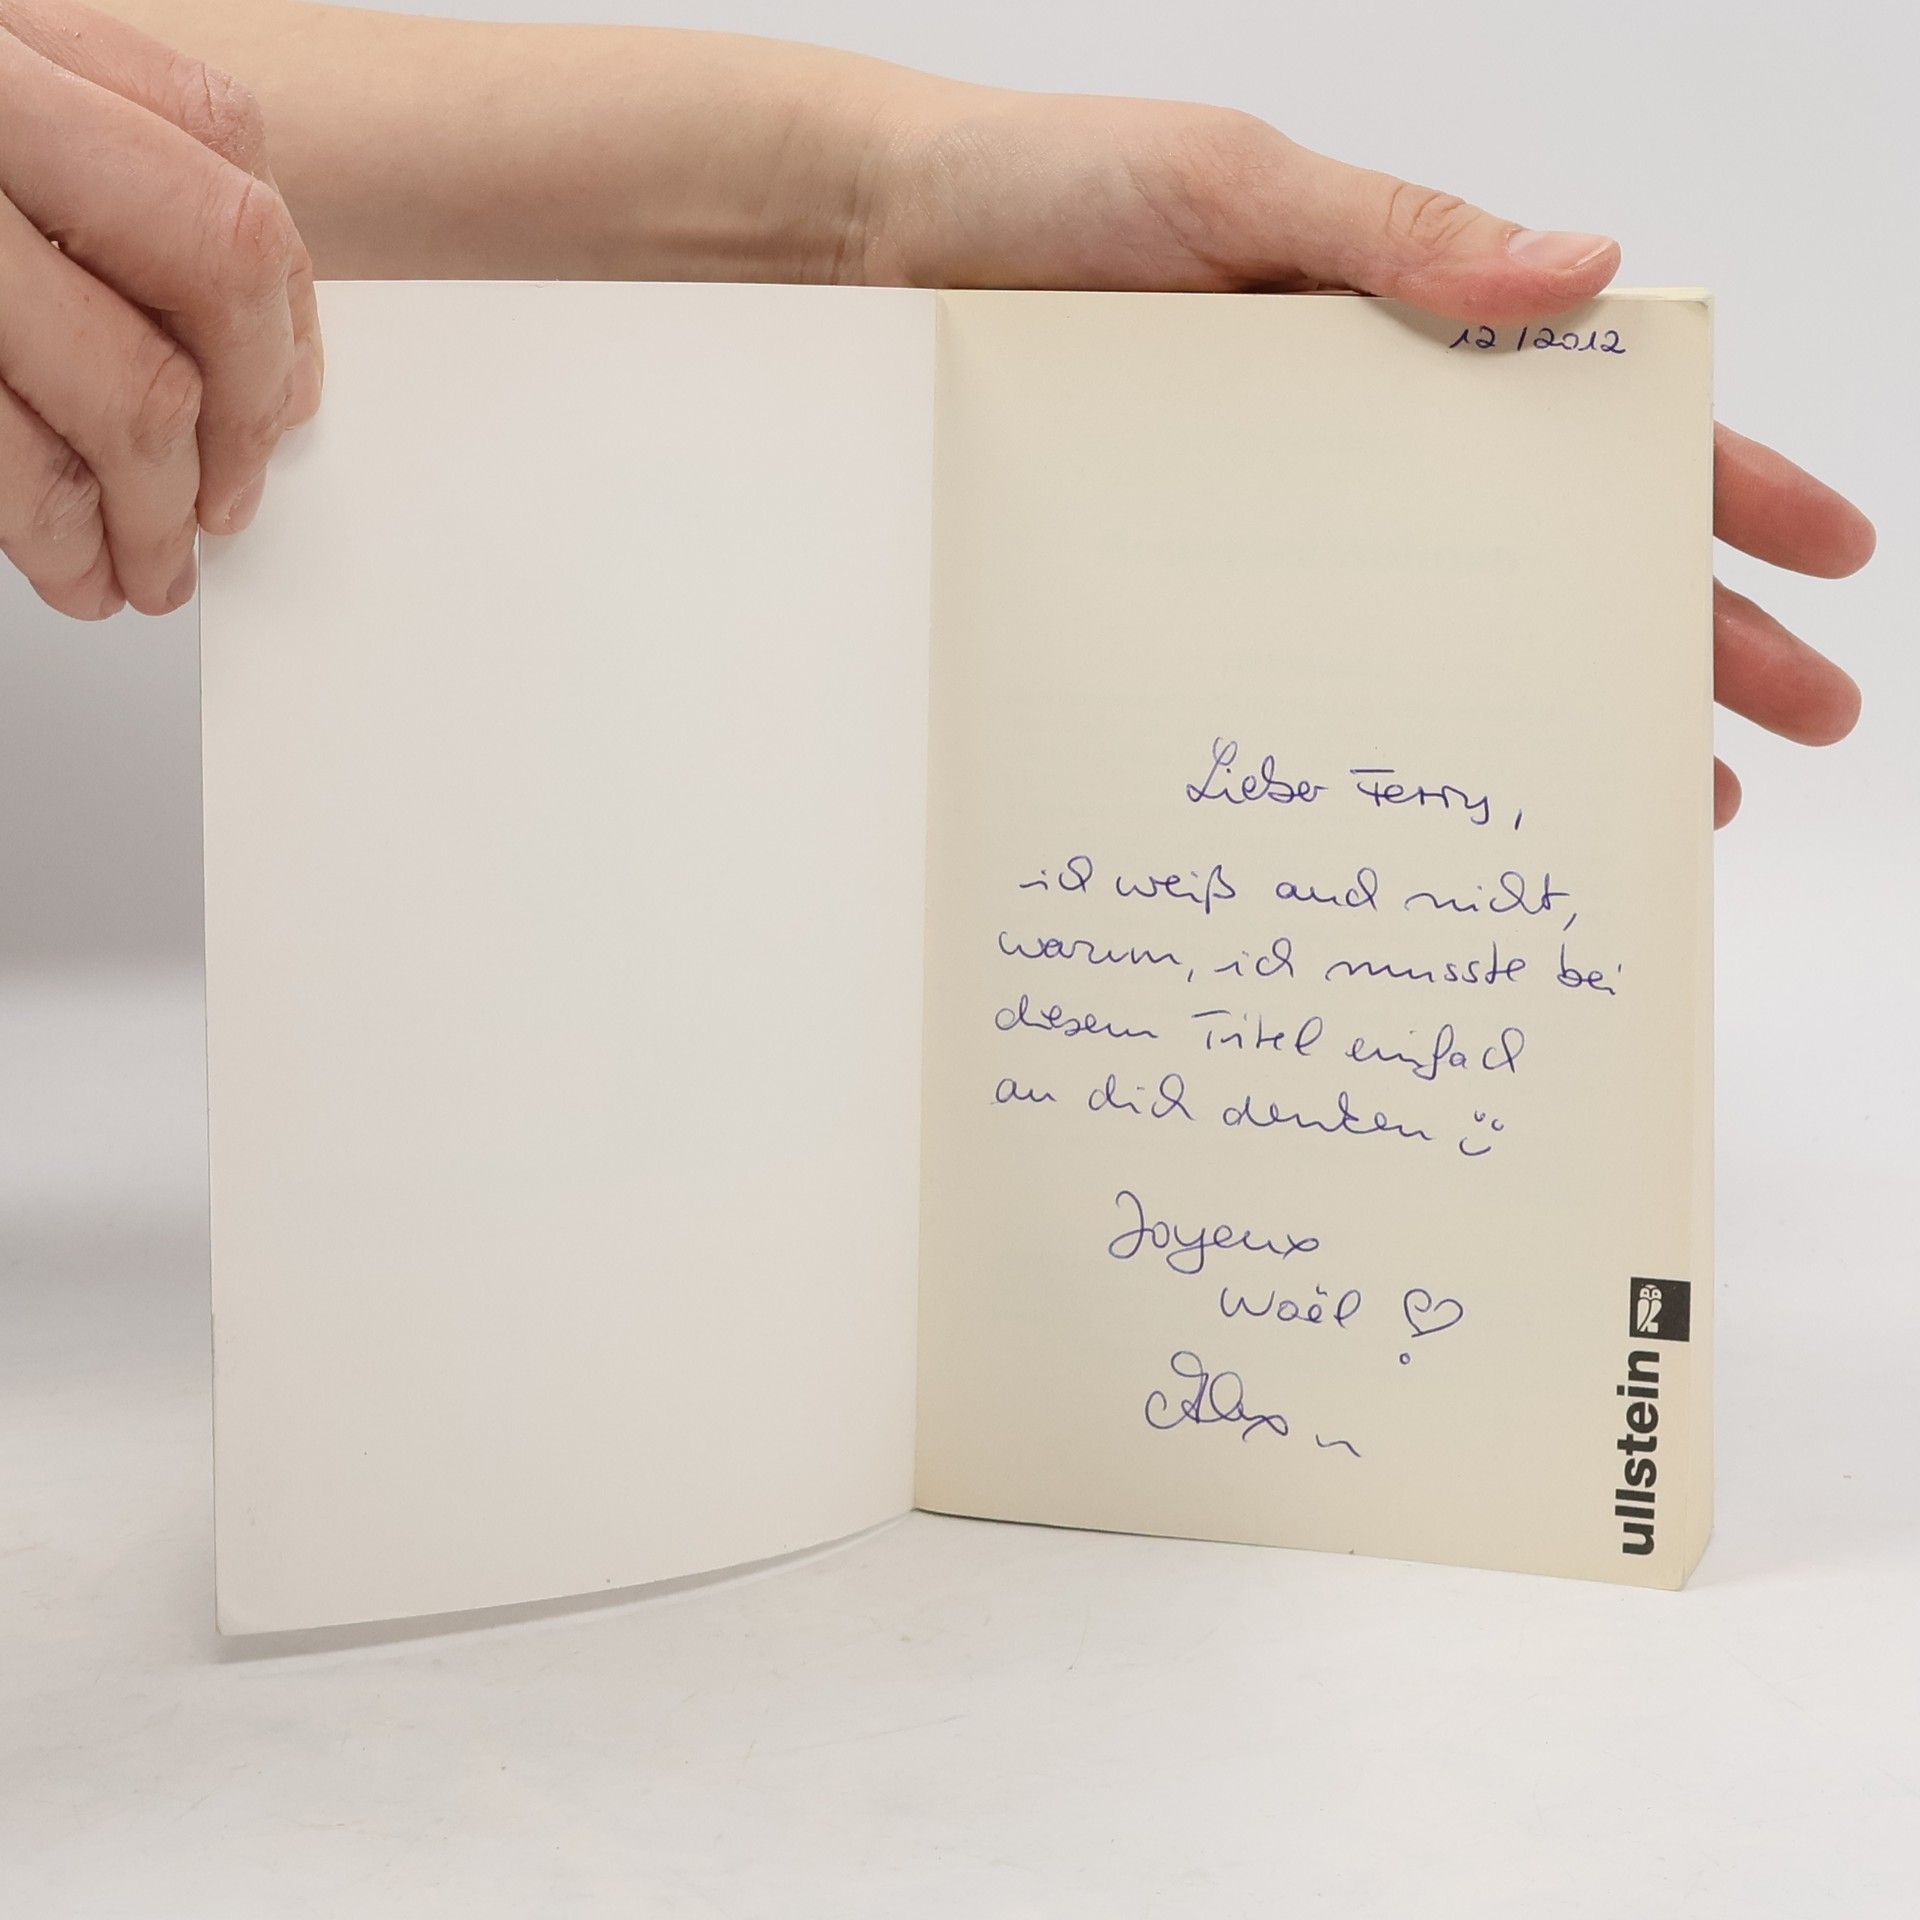 12/2012
Lieber Ferry,
ich weiß auch nicht,
warum, ich musste bei
diesem Titel einfach
an dich denken
Joyeux
Noël
Alex
ullstein